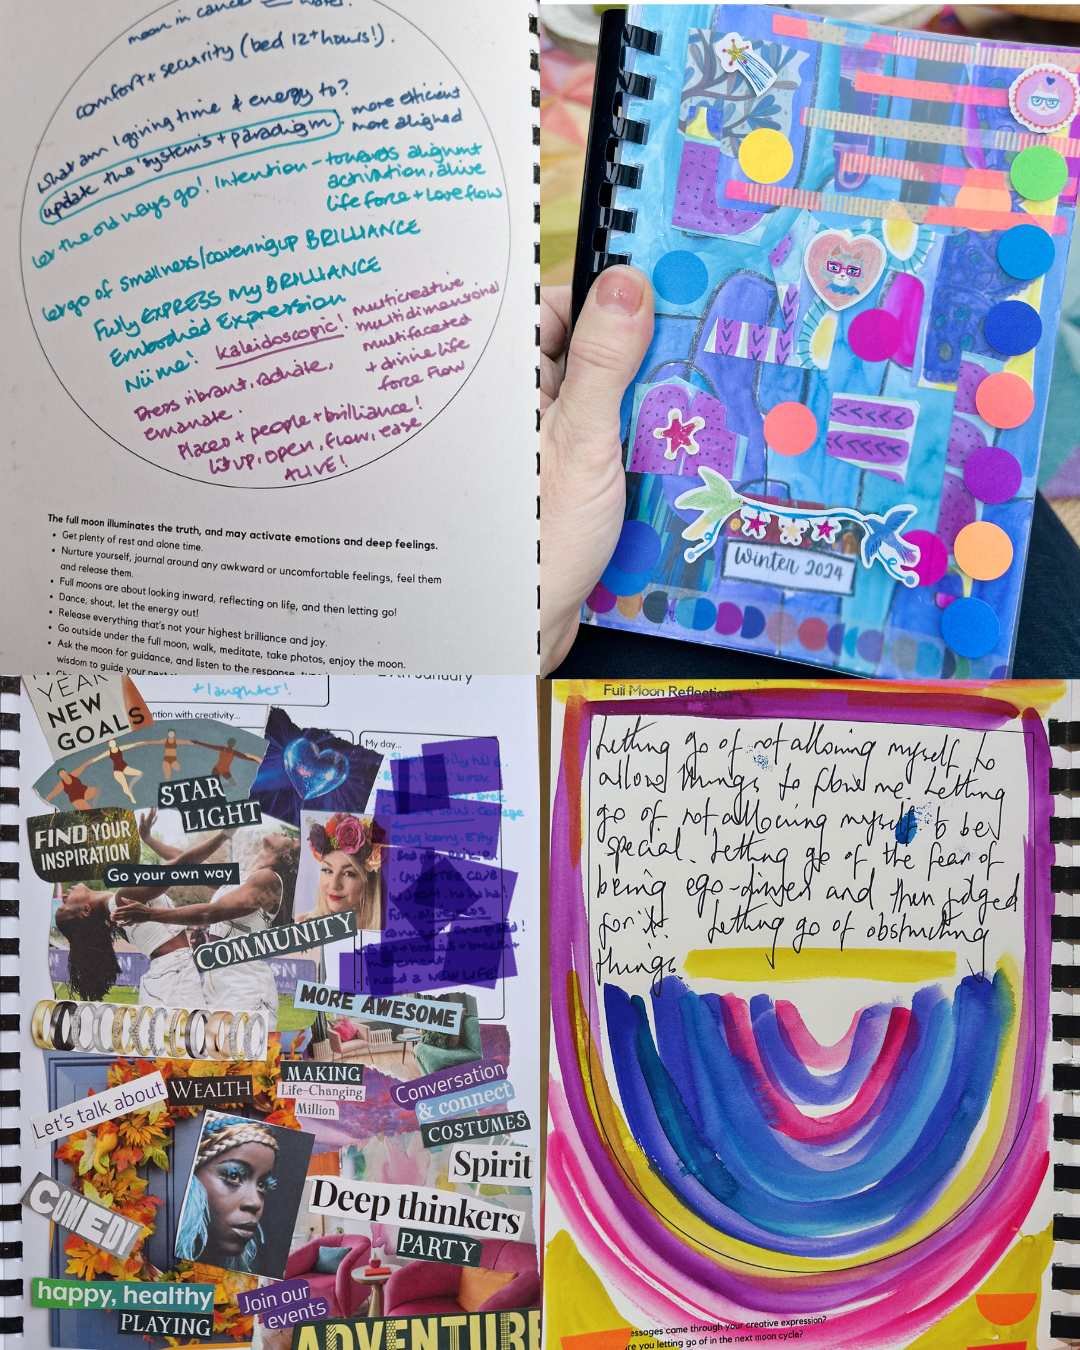 moon in cancer = water.
comfort + security (bed 12+hours!).
What am I giving time & energy to?
update the systems + paradigm - more efficient
more aligned
Let the old ways go! Intention - towards alignmt
activation, alive
life force + Love flow
Let go of smallness/covering up BRILLIANCE
Fully EXPRESS My BRILLIANCE
Embodied Expression
Nü me! Kaleidoscopic! multicreative
multidimensional
multifaceted
+ divine life
force flow
Dress vibrant, radiate,
emanate.
Places + people + brilliance!
Lit up, open, flow, ease
ALIVE!
The full moon illuminates the truth, and may activate emotions and deep feelings.
• Get plenty of rest and alone time.
• Nurture yourself, journal around any awkward or uncomfortable feelings, feel them
and release them.
• Full moons are about looking inward, reflecting on life, and then letting go!
• Dance, shout, let the energy out!
• Release everything that's not your highest brilliance and joy.
• Go outside under the full moon, walk, meditate, take photos, enjoy the moon.
• Ask the moon for guidance, and listen to the response
wisdom to guide your next
winter 2024
YEAR
NEW
GOALS
+ laughter!
January
ntion with creativity...
My day...
STAR
LIGHT
FIND YOUR
INSPIRATION
Go your own way
COMMUNITY
I need a NEW LIFE!
MORE AWESOME
Let's talk about
WEALTH
MAKING
Life-Changing
Million
Conversation
& connect
COSTUMES
Spirit
COMEDY
Deep thinkers
PARTY
happy, healthy
PLAYING
Join our
events
ADVENTURE
Full Moon Reflection
Letting go of not allowing myself to
allow things to flow to me. Letting
go of not allowing myself to be
special. Letting go of the fear of
being ego-driven and then judged
for it. Letting go of obstructing
things.
essages came through your creative expression?
re you letting go of in the next moon cycle?